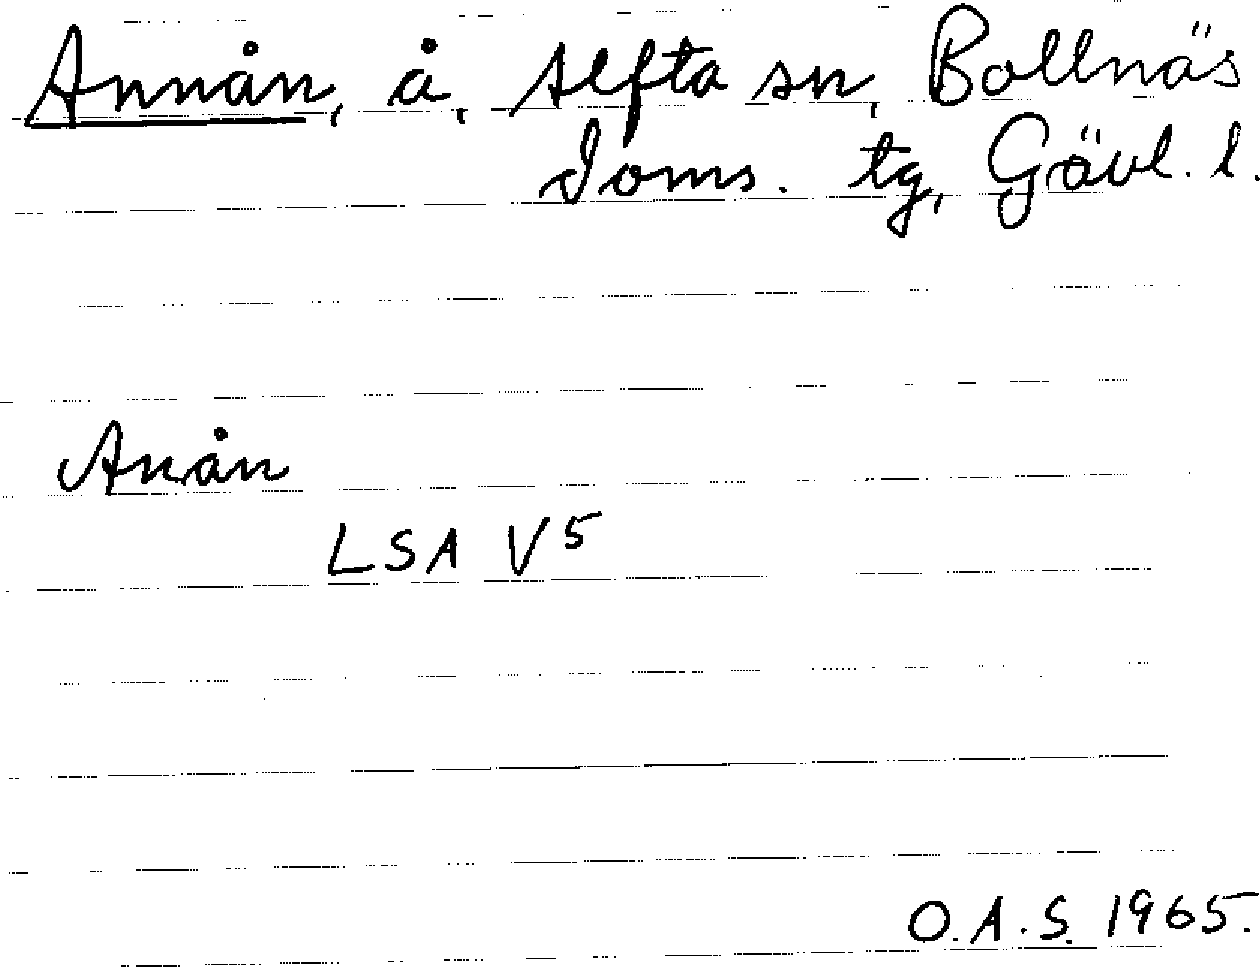 Annån, å, Alfta sn, Bollnäs
doms. tg, Gävl. l.
Anån
LSA V5
O.A.S. 1965.